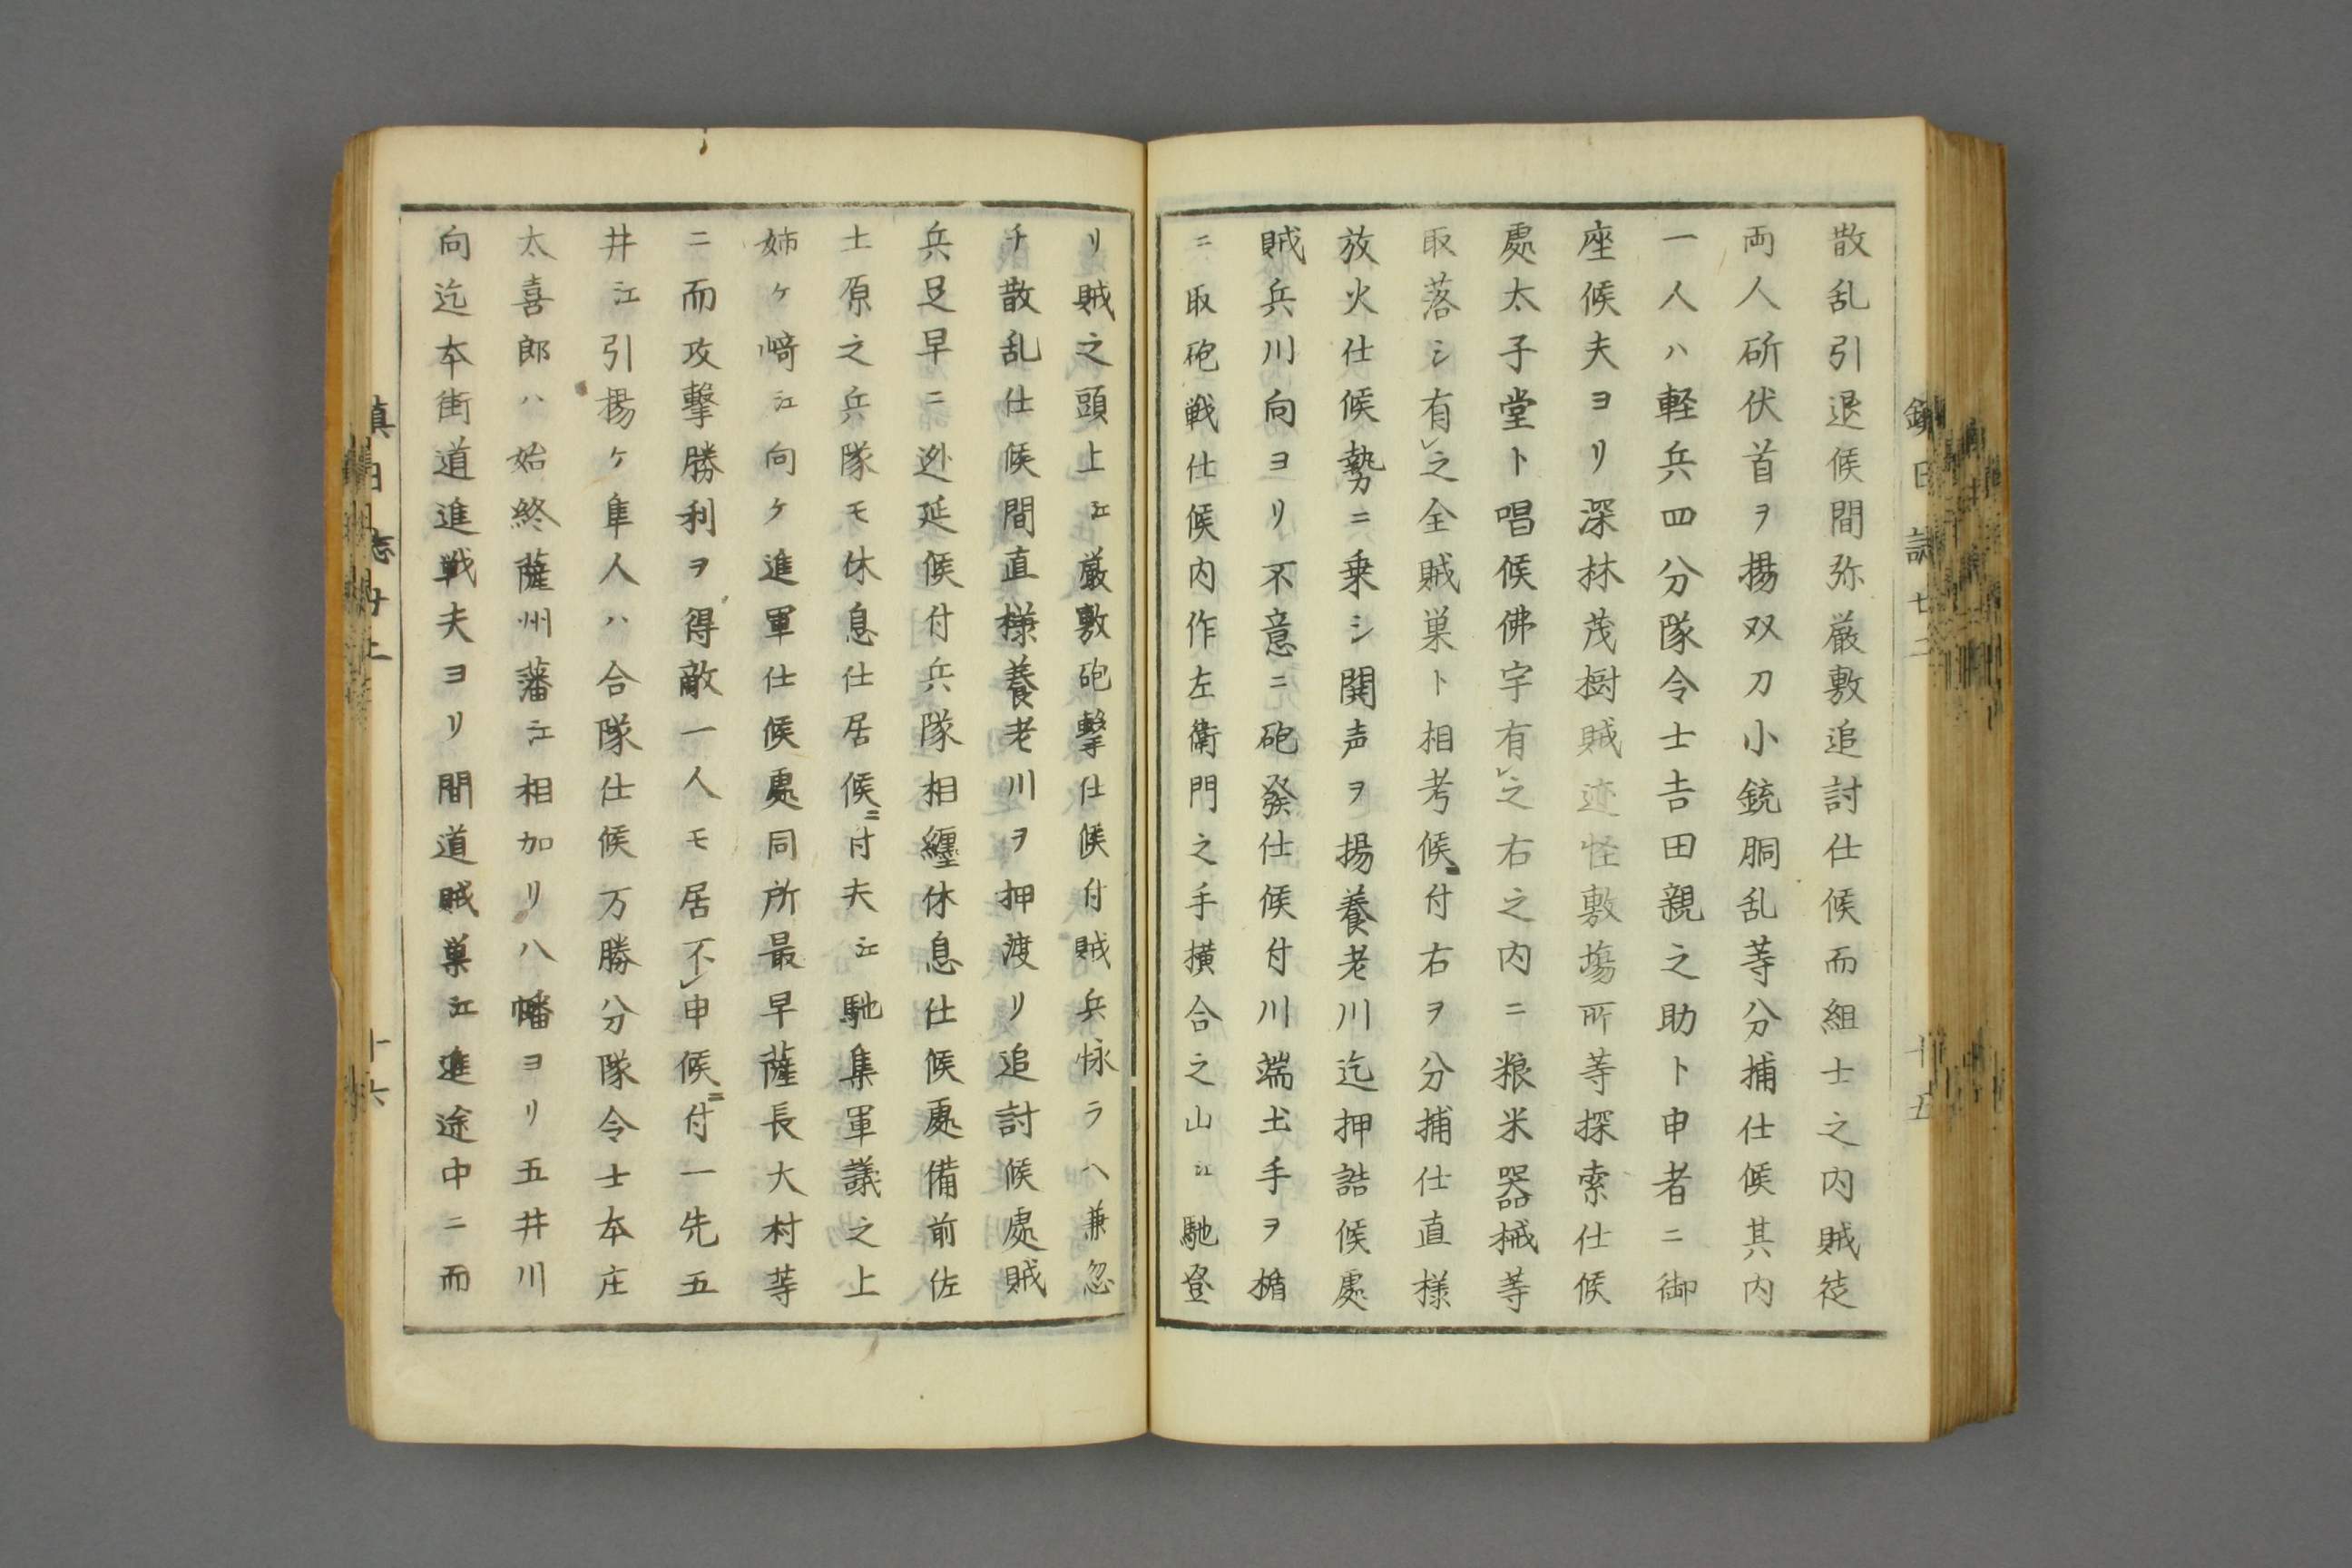 散乱引退候間弥厳敷追討仕候而組士之内賊徒
両人斫伏首ヲ揚双刀小銃胴乱䓁分捕仕候其内
一人ハ軽兵四分隊令士𠮷田親之助ト申者ニ御
座候夫ヨリ深林茂樹賊迹怪敷塲所䓁探索仕候
處太子堂ト唱候佛宇有之右之内ニ粮米器械䓁
取落シ有之全賊巣ト相考候付右ヲ分捕仕直様
放火仕候勢ニ乗シ閧声ヲ揚養老川迄押詰候處
賊兵川向ヨリ不意ニ砲發仕候付川端土手ヲ楯
ニ取砲戦仕候内作左衛門之手横合之山江馳登
リ賊之頭上江厳敷砲撃仕候付賊兵怺ラヘ兼忽
チ散乱仕候間直様養老川ヲ押渡リ追討候處賊
兵足早ニ迯延候付兵隊相纏休息仕候處備前佐
土原之兵隊モ休息仕居候ニ付夫江馳集軍議之上
姉ヶ﨑江向ケ進軍仕候處同所最早薩長大村䓁
ニ而攻撃勝利ヲ得敵一人モ居不申候ニ付一先五
井江引揚ケ隼人ハ合隊仕候万勝分隊令士本庄
太喜郎ハ始終薩州藩江相加リ八幡ヨリ五井川
向迄本街道進戦夫ヨリ間道賊巣江進途中ニ而